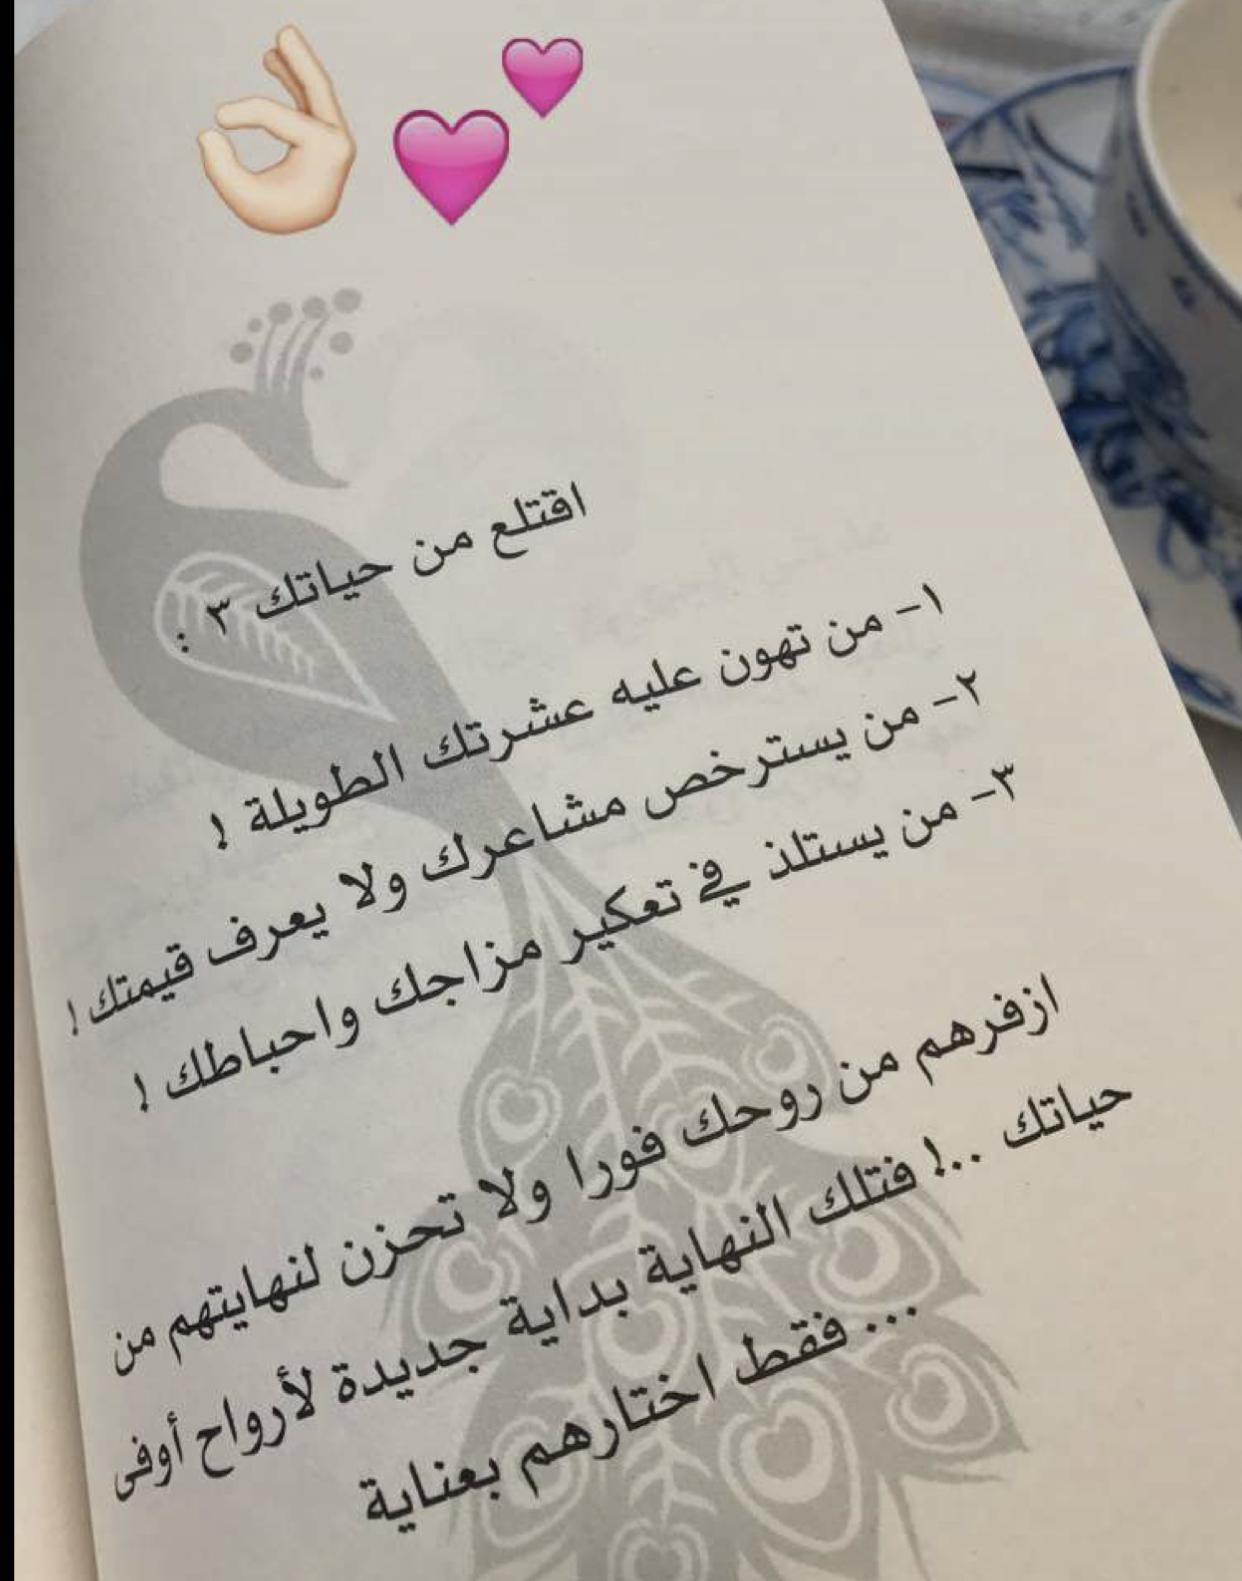 اقتلع من حياتك ٣ :
١- من تهون عليه عشرتك الطويلة !
٢- من يسترخص مشاعرك ولا يعرف قيمتك !
٣- من يستلذ في تعكير مزاجك واحباطك !
ازفرهم من روحك فورا ولا تحزن لنهايتهم من
حياتك ..! فتلك النهاية بداية جديدة لأرواح أوفى
... فقط اختارهم بعناية